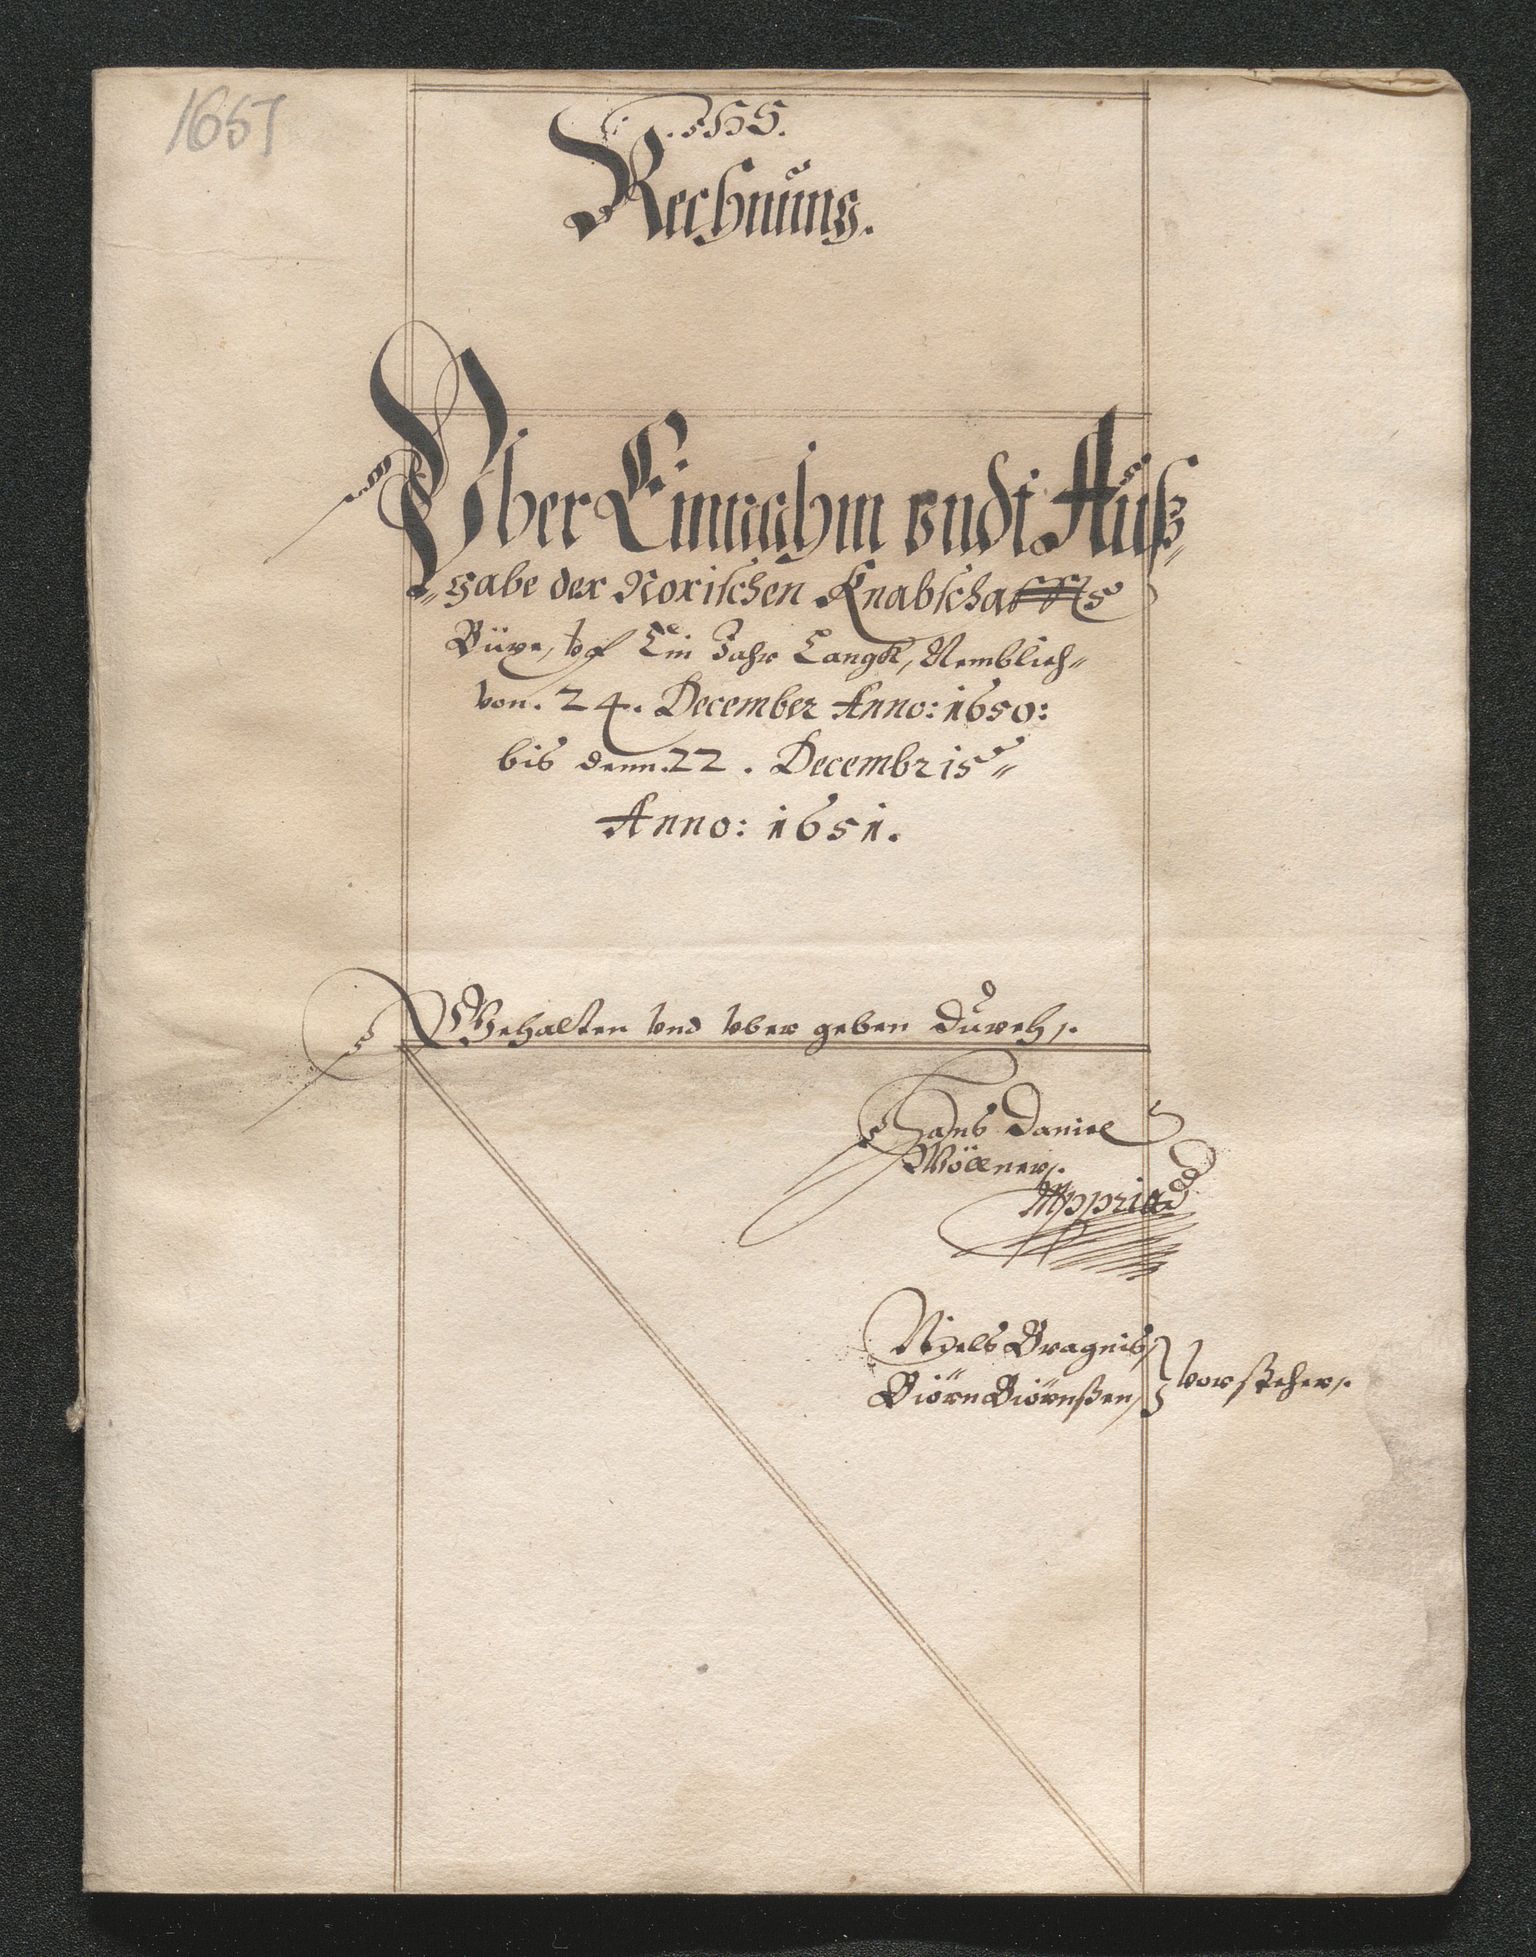 1651
Rechnung.
Uber Einnahm vndt Auß„
„gabe der Norischen Knabschaffts
Büxe, vf Ein Jahr Langk, Nemblich„
von. 24. December Anno: 1650:
bis denn. 22. Decembris„
Anno: 1651.
Gehalten vnd vber geben durch,.
Hans Daniel
Wöllner,.
Mppria
Niels Bragnis,
Biörn Biörnßen, vorsteher,.